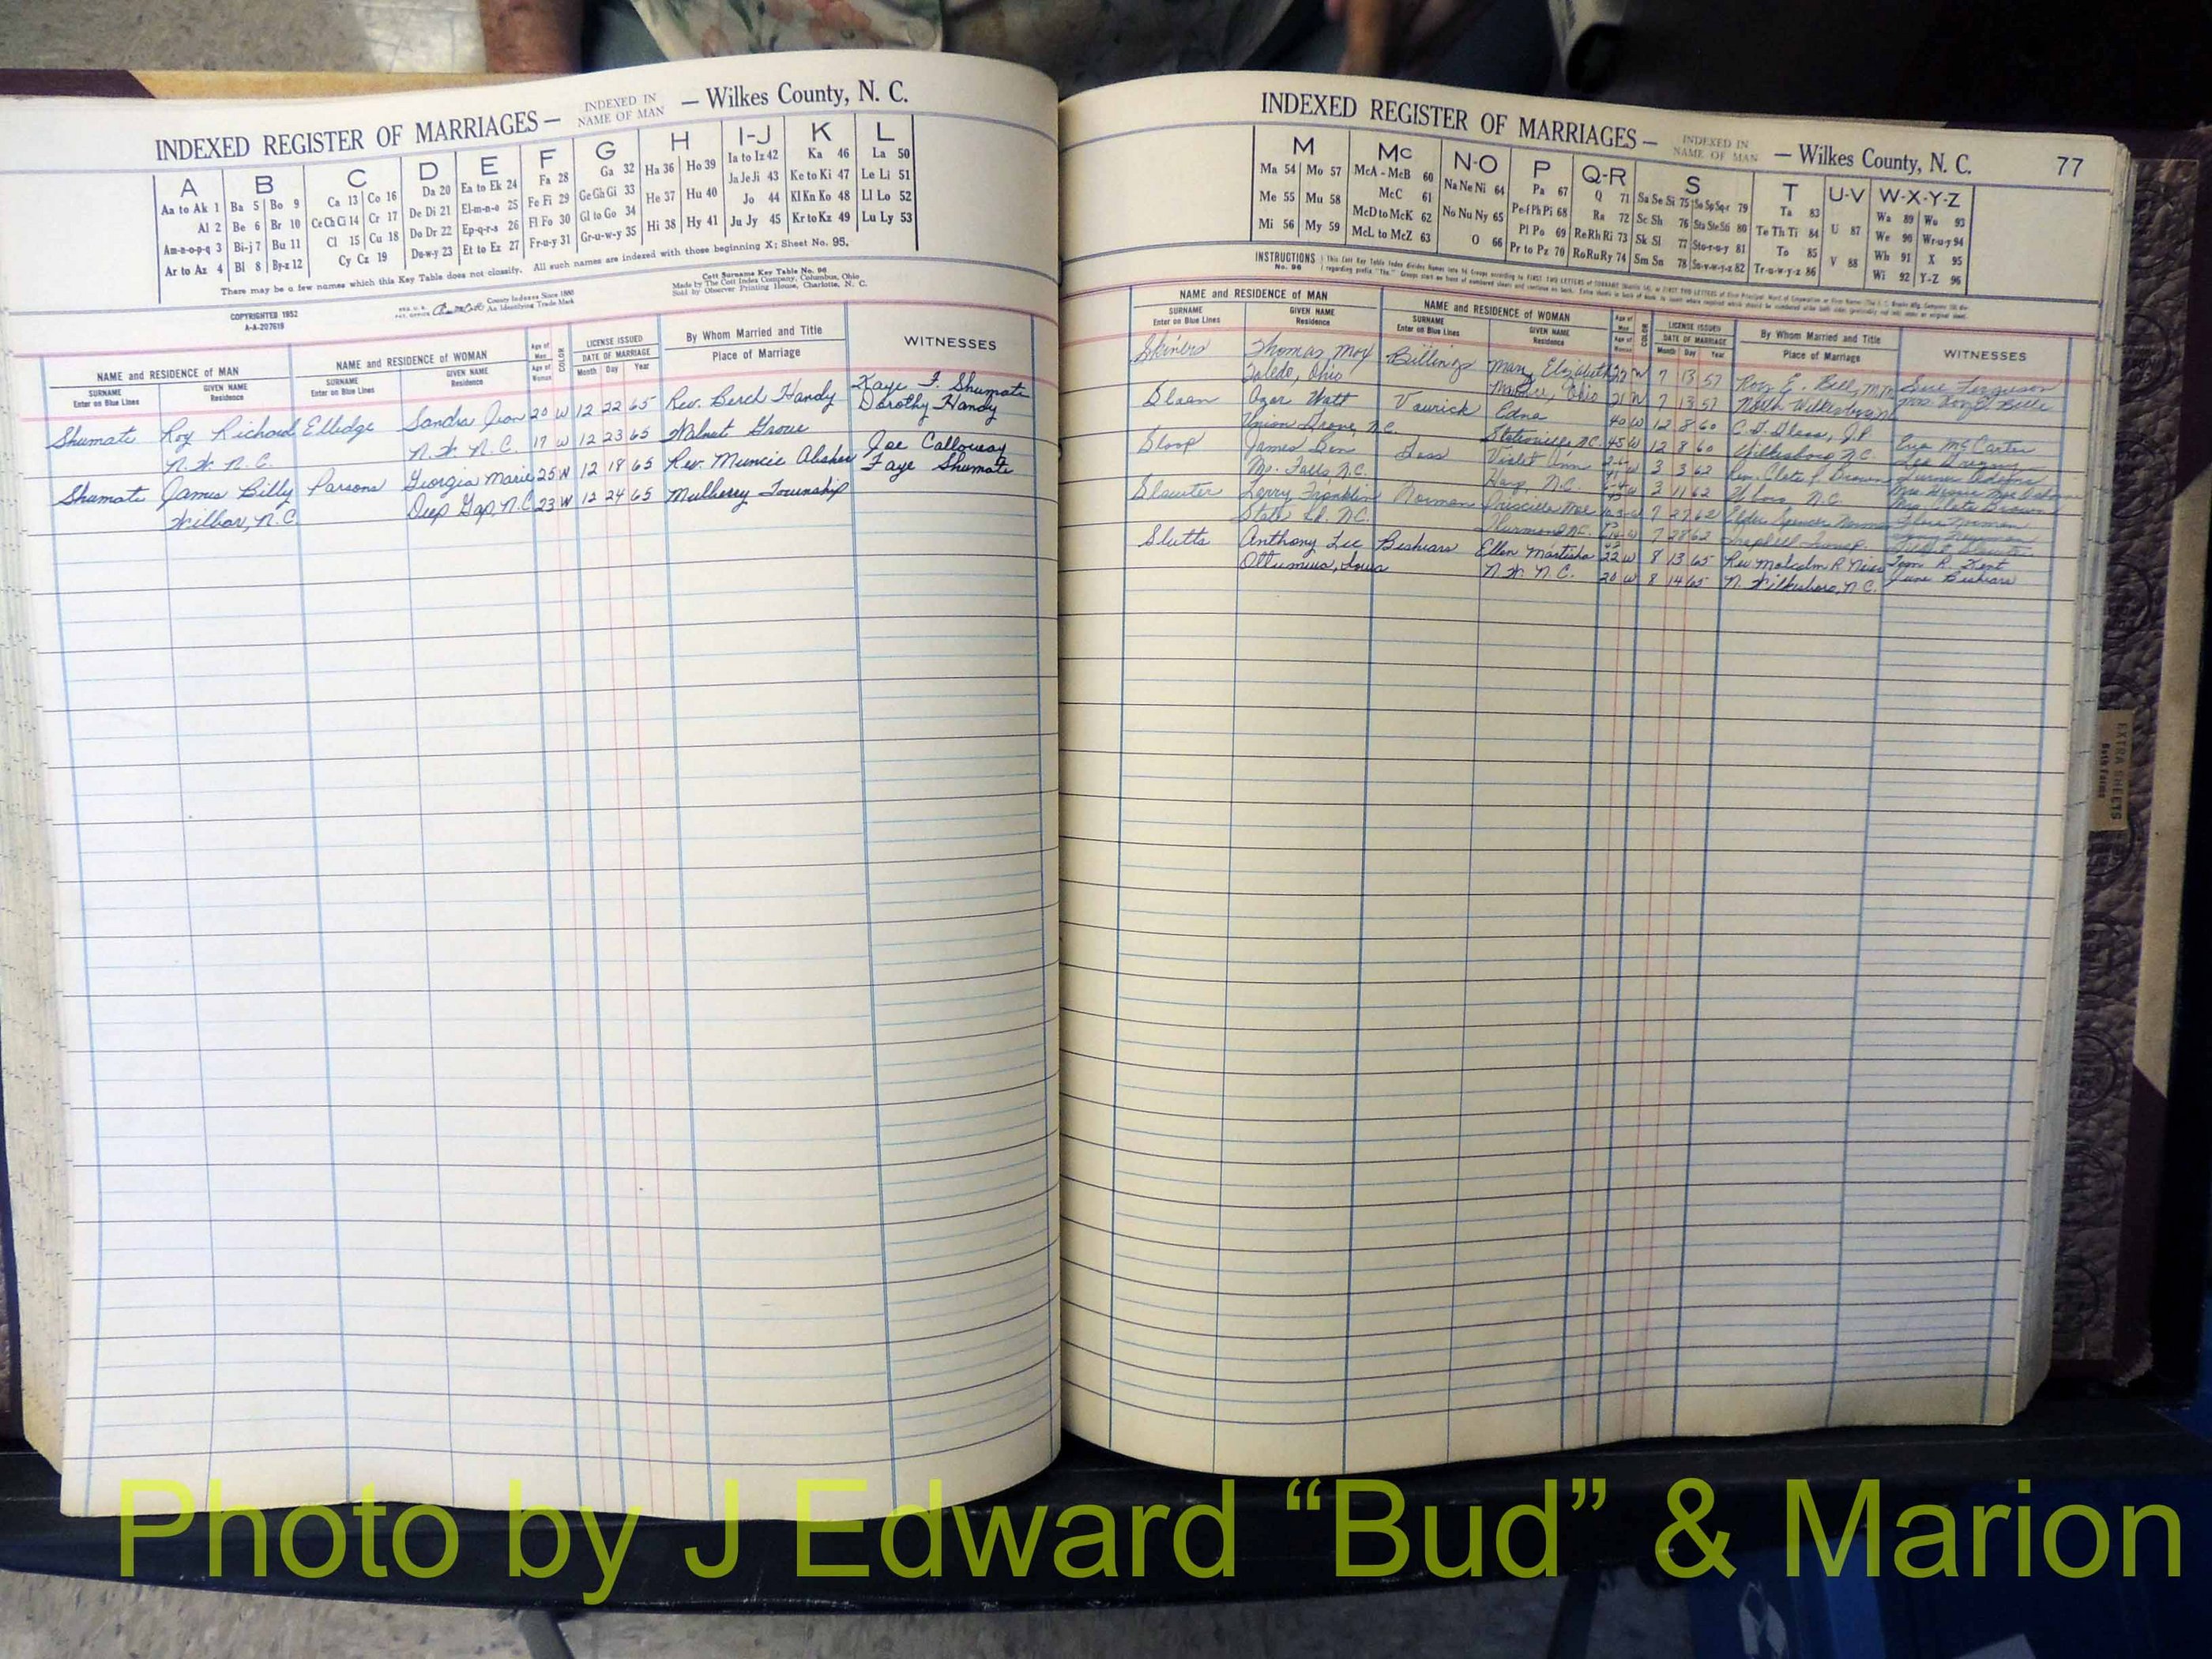 INDEXED REGISTER OF MARRIAGES — INDEXED IN NAME OF MAN — Wilkes County, N. C.
A B C D E F G H I-J K L
Aa to Ak 1 Ba 5 Bo 9 Ca 13 Co 16 Da 20 Ea to Ek 24 Fa 28 Ga 32 Ha 36 Ho 39 Ia to Iz 42 Ka 46 La 50
Al 2 Be 6 Br 10 Ce Ch Ci 14 Cr 17 De Di 21 El-m-n-o 25 Fe Fi 29 Ge Gh Gi 33 He 37 Hu 40 Ja Je Ji 43 Ke to Ki 47 Le Li 51
Am-n-o-p-q 3 Bi-j 7 Bu 11 Cl 15 Cu 18 Do Dr 22 Ep-q-r-s 26 Fl Fo 30 Gl to Go 34 Hi 38 Hy 41 Jo 44 Kl Kn Ko 48 Ll Lo 52
Ar to Az 4 Bl 8 By-z 12 Cy Cz 19 Du-w-y 23 Et to Ez 27 Fr-u-y 31 Gr-u-w-y 35 Ju Jy 45 Kr to Kz 49 Lu Ly 53
There may be a few names which this Key Table does not classify. All such names are indexed with those beginning X; Sheet No. 95.
COPYRIGHTED 1952
A-A-207619
County Indexes Since 1880
An Identifying Trade Mark
Cott Surname Key Table No. 96
Made by The Cott Index Company, Columbus, Ohio
Sold by Observer Printing House, Charlotte, N. C.
NAME and RESIDENCE of MAN NAME and RESIDENCE of WOMAN Age of Man Age of Woman COLOR LICENSE ISSUED By Whom Married and Title WITNESSES
SURNAME GIVEN NAME SURNAME GIVEN NAME DATE OF MARRIAGE Place of Marriage
Enter on Blue Lines Residence Enter on Blue Lines Residence Month Day Year
Shumate Roy Richard Elledge Sandra Jean 20 W 12 22 65 Rev. Berch Handy Kaye F. Shumate
N. W. N. C. N. W. N. C. 17 W 12 23 65 Walnut Grove Dorothy Handy
Shumate James Billy Parsons Georgia Marie 25 W 12 18 65 Rev. Muncie Absher Joe Calloway
Wilbar, N.C. Deep Gap, N.C. 23 W 12 24 65 Mulberry Township Faye Shumate
INDEXED REGISTER OF MARRIAGES — INDEXED IN NAME OF MAN — Wilkes County, N. C. 77
M Mc N-O P Q-R S T U-V W-X-Y-Z
Ma 54 Mo 57 McA - McB 60 Na Ne Ni 64 Pa 67 Q 71 Sa Se Si 75 Ta 83 Wa 89 Wo 93
Me 55 Mu 58 McC 61 No Nu Ny 65 Pe-f Ph Pi 68 Ra 72 Sc Sh 76 Te Th Ti 84 U 87 We 90 Wr-u-y 94
Mi 56 My 59 McD to McK 62 O 66 Pl Po 69 Re Rh Ri 73 Sk Sl 77 Sto-r-u-y 81 To 85 V 88 Wh 91 X 95
McL to McZ 63 Pr to Pz 70 Ro Ru Ry 74 Sm Sn 78 Tr-u-w-y-z 86 Wi 92 Y-Z 96
INSTRUCTIONS
No. 96
NAME and RESIDENCE of MAN NAME and RESIDENCE of WOMAN Age of Man Age of Woman COLOR LICENSE ISSUED By Whom Married and Title WITNESSES
SURNAME GIVEN NAME SURNAME GIVEN NAME DATE OF MARRIAGE Place of Marriage
Enter on Blue Lines Residence Enter on Blue Lines Residence Month Day Year
Skiners Thomas Billings Mary Elizabeth W 7 13 57 Roy E. Bell, Sue Ferguson
Toledo, Ohio Ohio 21 W 7 13 57 North Wilkesboro
Sloan Watt Edna 40 W 12 8 60 J.P. Eva McCarter
Union Grove, N.C. Statesville N.C. 45 W 12 8 60 Wilkesboro N.C.
Sloop James Ben Violet Ann W 3 3 62 Rev. Clate Brown
Mo. Falls, N.C. Hays, N.C. 3 11 62 N.C. Mrs. Clate Brown
Larry Franklin Norman Priscilla Mae 7 27 62 Elder Spencer Norman Norman
State Rd. N.C. Thurmond N.C. 7 28 62
Slutts Anthony Lee Beshears Ellen Martisha 22 W 8 13 65 Rev Malcolm R Tom R. Kent
Ottumwa, Iowa N. W. N. C. 20 W 8 14 65 N. Wilkesboro, N.C. June Beshears
EXTRA SHEETS
Photo by J Edward “Bud” & Marion